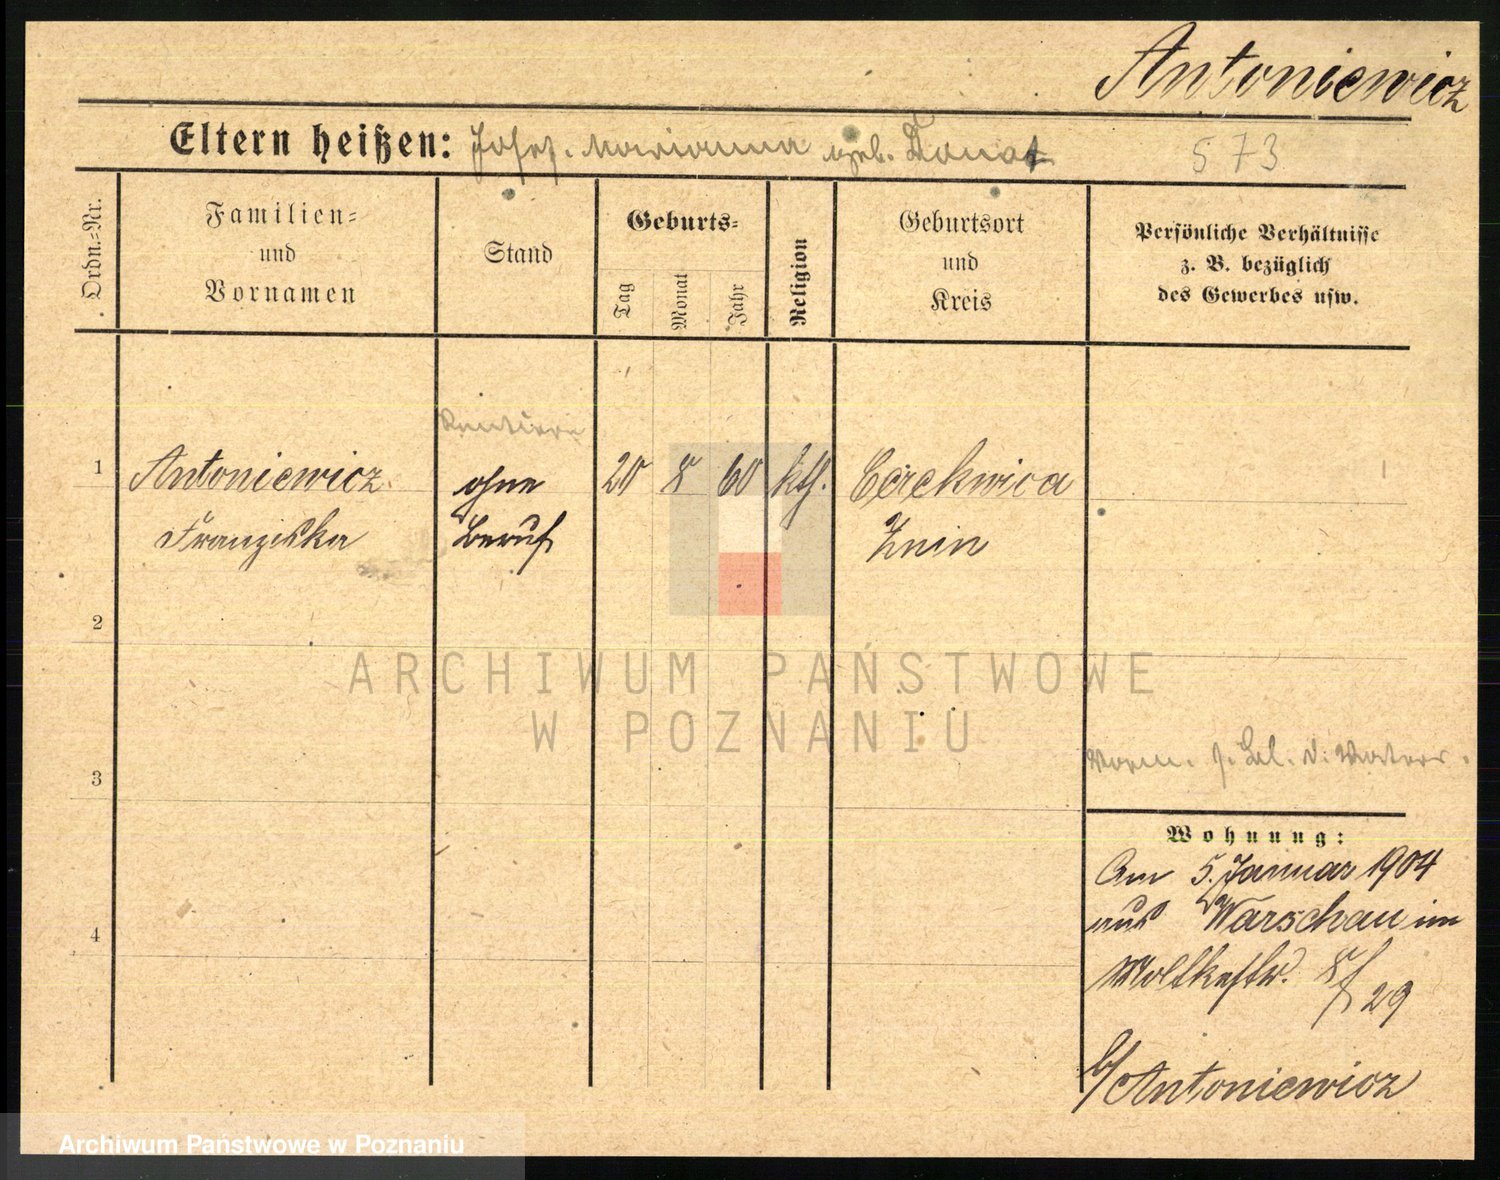 Antoniewicz
Eltern heißen: Josef. Marianna geb. Donat 573
Ordn.=Nr.
Familien=
und
Vornamen
Stand
Geburts=
Tag
Monat
Jahr
Religion
Geburtsort
und
Kreis
Persönliche Verhältnisse
z. B. bezüglich
des Gewerbes usw.
Rentiere
1 Antoniewicz ohne 20 8 60 kth. Cerekwica
Franziska Beruf Znin
2
ARCHIWUM PAŃSTWOWE
W POZNANIU
3
4
Wohnung:
Am 5. Januar 1904
aus Warschau im
Moltkestr. 8/29
b/Antoniewicz
Archiwum Państwowe w Poznaniu